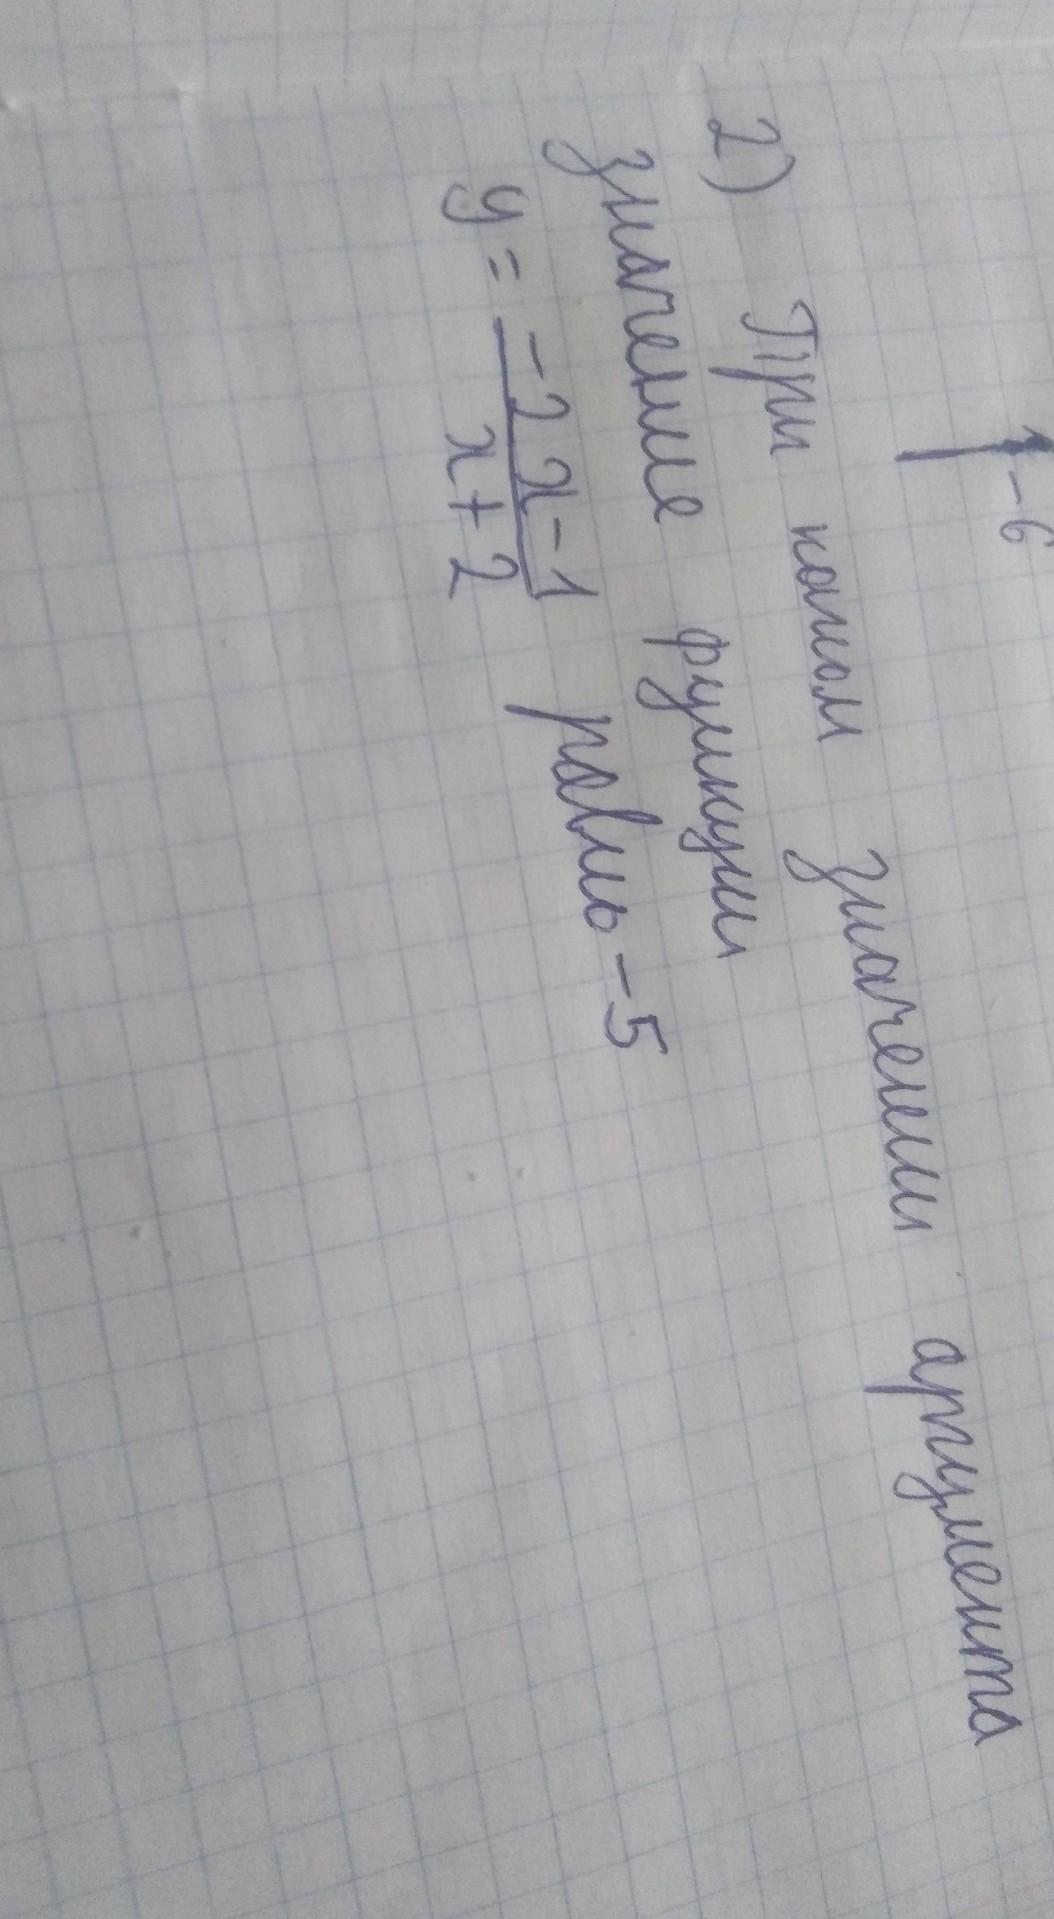 -6
2) При каком значении аргумента
значение функции
y = \frac{-2x-1}{x+2} равно -5